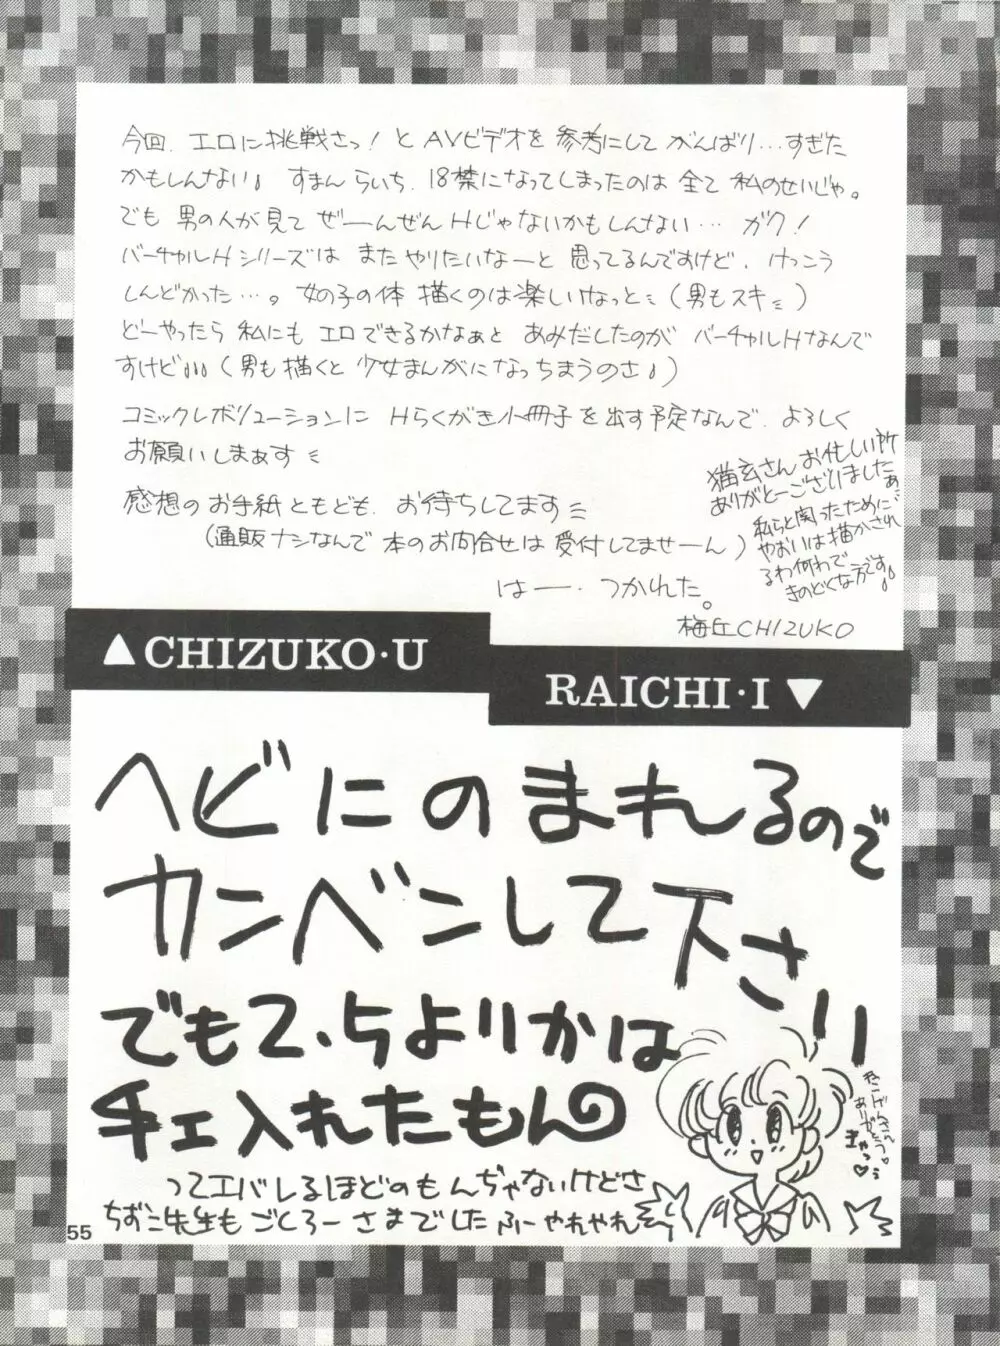 今回、エロに挑戦さっ！とAVビデオを参考にしてがんばり…すぎた
かもしんない♪ すまんらいち、18禁になってしまったのは全て私のせいじゃ。
でも男の人が見てぜーんぜんHじゃないかもしんない… ガク！
バーチャルHシリーズはまたやりたいなーと思ってるんですけど、けっこう
しんどかった…。女の子の体描くのは楽しいなっと（男もスキ）
どーやったら私にもエロできるかなぁとあみだしたのがバーチャルHなんで
すけど♪♪♪（男も描くと少女まんがになっちまうのさ♪）
コミックレボリューションにHらくがき小冊子を出す予定なんで、よろしく
お願いしまぁす
感想のお手紙ともども、お待ちしてます
（通販ナシなんで本のお問合せは受付してませーん）
はー・つかれた。
猫玄さんお忙しい所
ありがとーございましたぁ…
私らと関ったために
やおいは描かされ
るわ何わで
きのどくな方です♪
梅丘CHIZUKO
▲CHIZUKO・U
RAICHI・I▼
ヘビにのまれるので
カンベンして下さい
でも2.5よりかは
チェ入れたもん
ってエバレるほどのもんぢゃないけどさ
ちずこ先生もごくろーさまでしたふーやれやれ
ありがとう♡
きゃっ♡
55